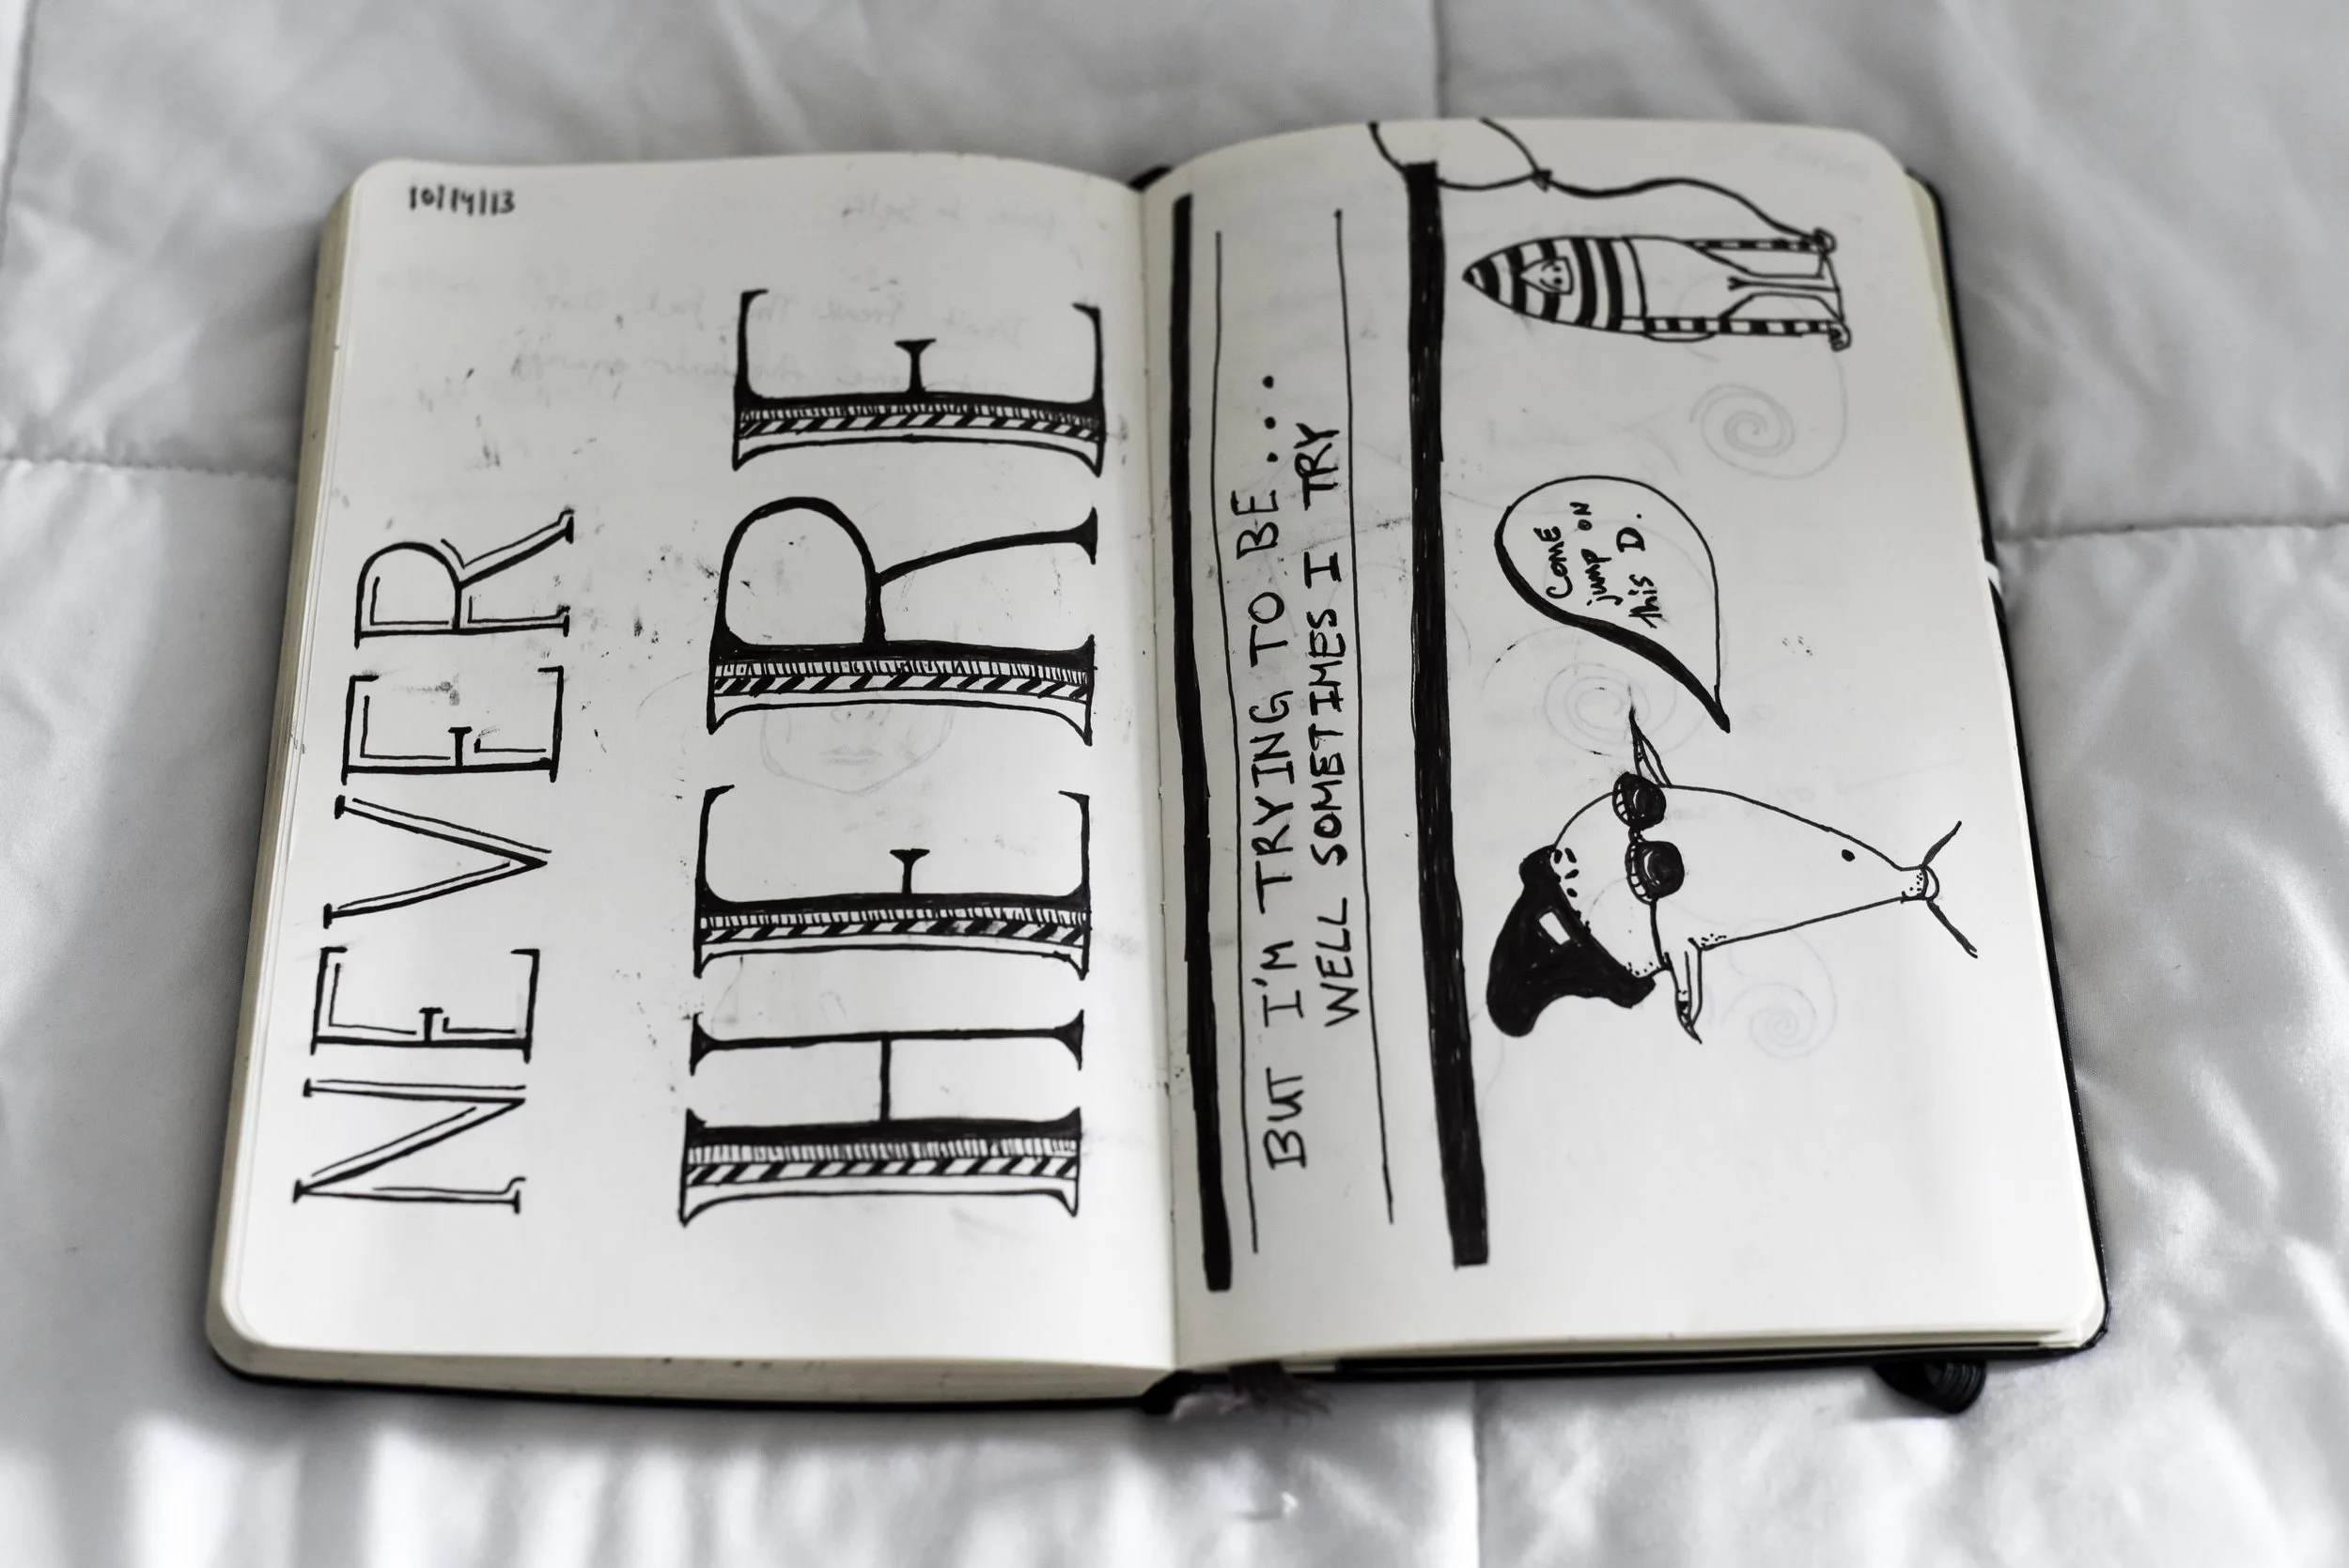 10/14/13
NEVER
HERE
BUT I'M TRYING TO BE....
WELL SOMETIMES I TRY
COME
jump ON
this D.